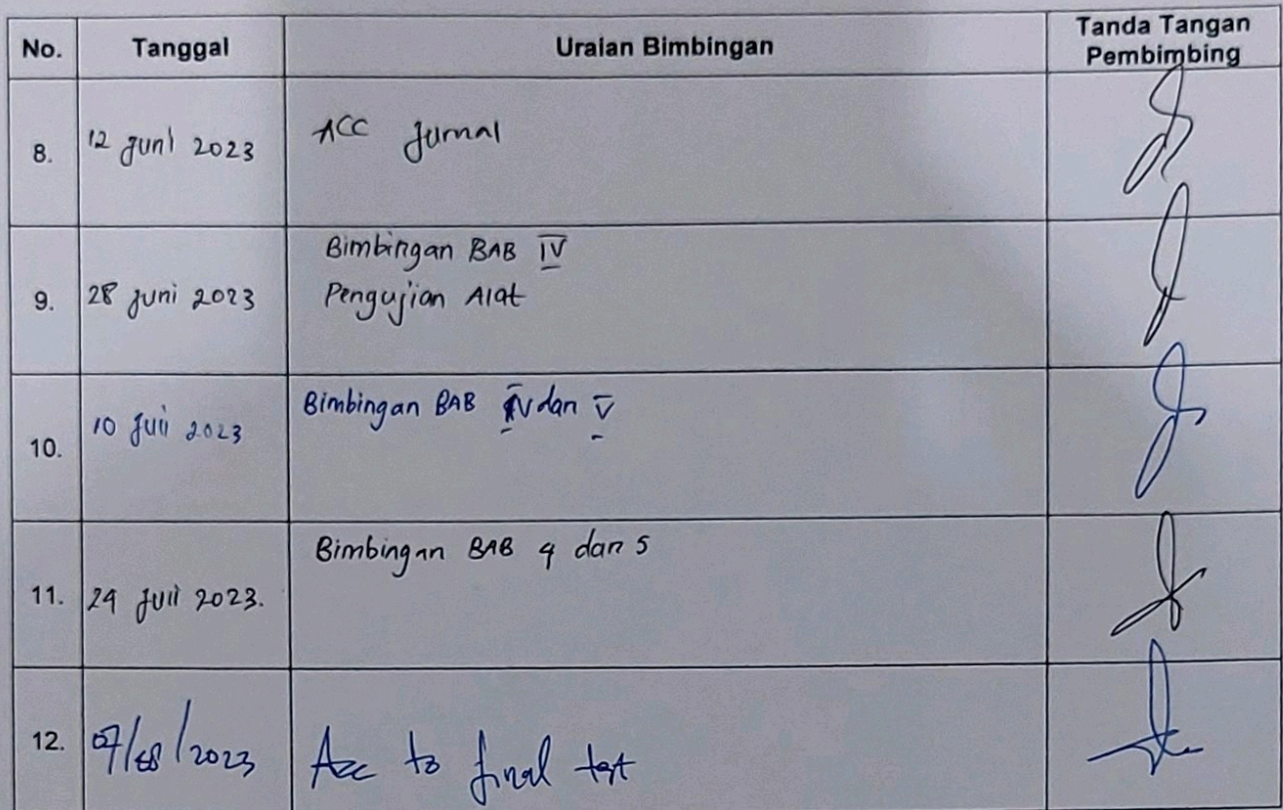 No. Tanggal Uraian Bimbingan Tanda Tangan Pembimbing
8. 12 Juni 2023 ACC Jurnal
9. 28 Juni 2023 Bimbingan BAB IV
Pengujian Alat
10. 10 Juli 2023 Bimbingan BAB IV dan V
11. 24 Juli 2023. Bimbingan BAB 4 dan 5
12. 07/08/2023 Acc to final test